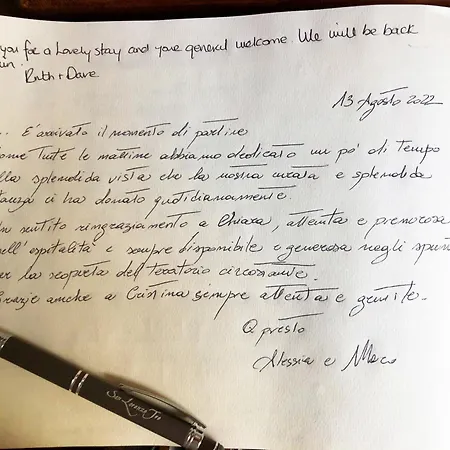 you for a lovely stay and your general welcome. We will be back
Ruth + Dave
13 Agosto 2022
... È arrivato il momento di partire
ome tutte le mattine abbiamo dedicato un pò di tempo
lla splendida vista che la nostra curata e splendida
tanza ci ha donato quotidianamente.
Un sentito ringraziamento a Chiara, attenta e premurosa
nell'ospitalità e sempre disponibile e generosa negli spun
er la scoperta del territorio circostante.
Grazie anche a Cristina sempre attenta e gentile.
A presto
Alessia e Marco